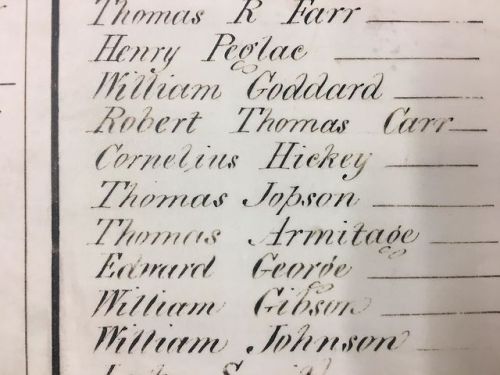 Thomas R Farr
Henry Peglac
William Goddard
Robert Thomas Carr
Cornelius Hickey
Thomas Jopson
Thomas Armitage
Edward George
William Gibson
William Johnson